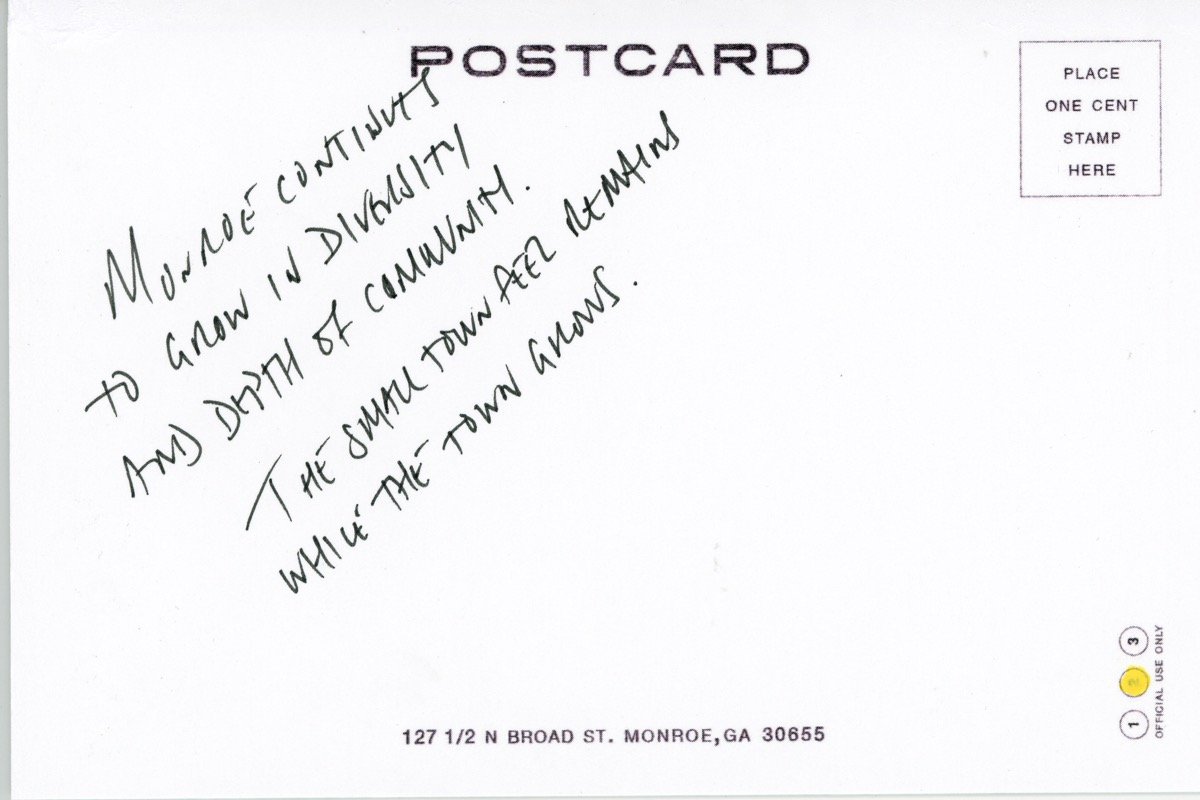 POSTCARD
PLACE
ONE CENT
STAMP
HERE
MONROE CONTINUES
TO GROW IN DIVERSITY
AND DEPTH OF COMMUNITY.
THE SMALL TOWN FEEL REMAINS
WHILE THE TOWN GROWS.
1 2 3
OFFICIAL USE ONLY
127 1/2 N BROAD ST. MONROE,GA 30655